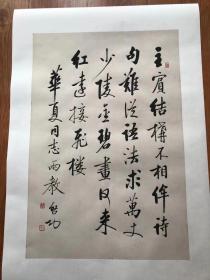 主賓結構不相侔詩
句難從語法求萬丈
少陵金碧畫夜來
紅遠接飛樓
華夏同志兩教 啟功